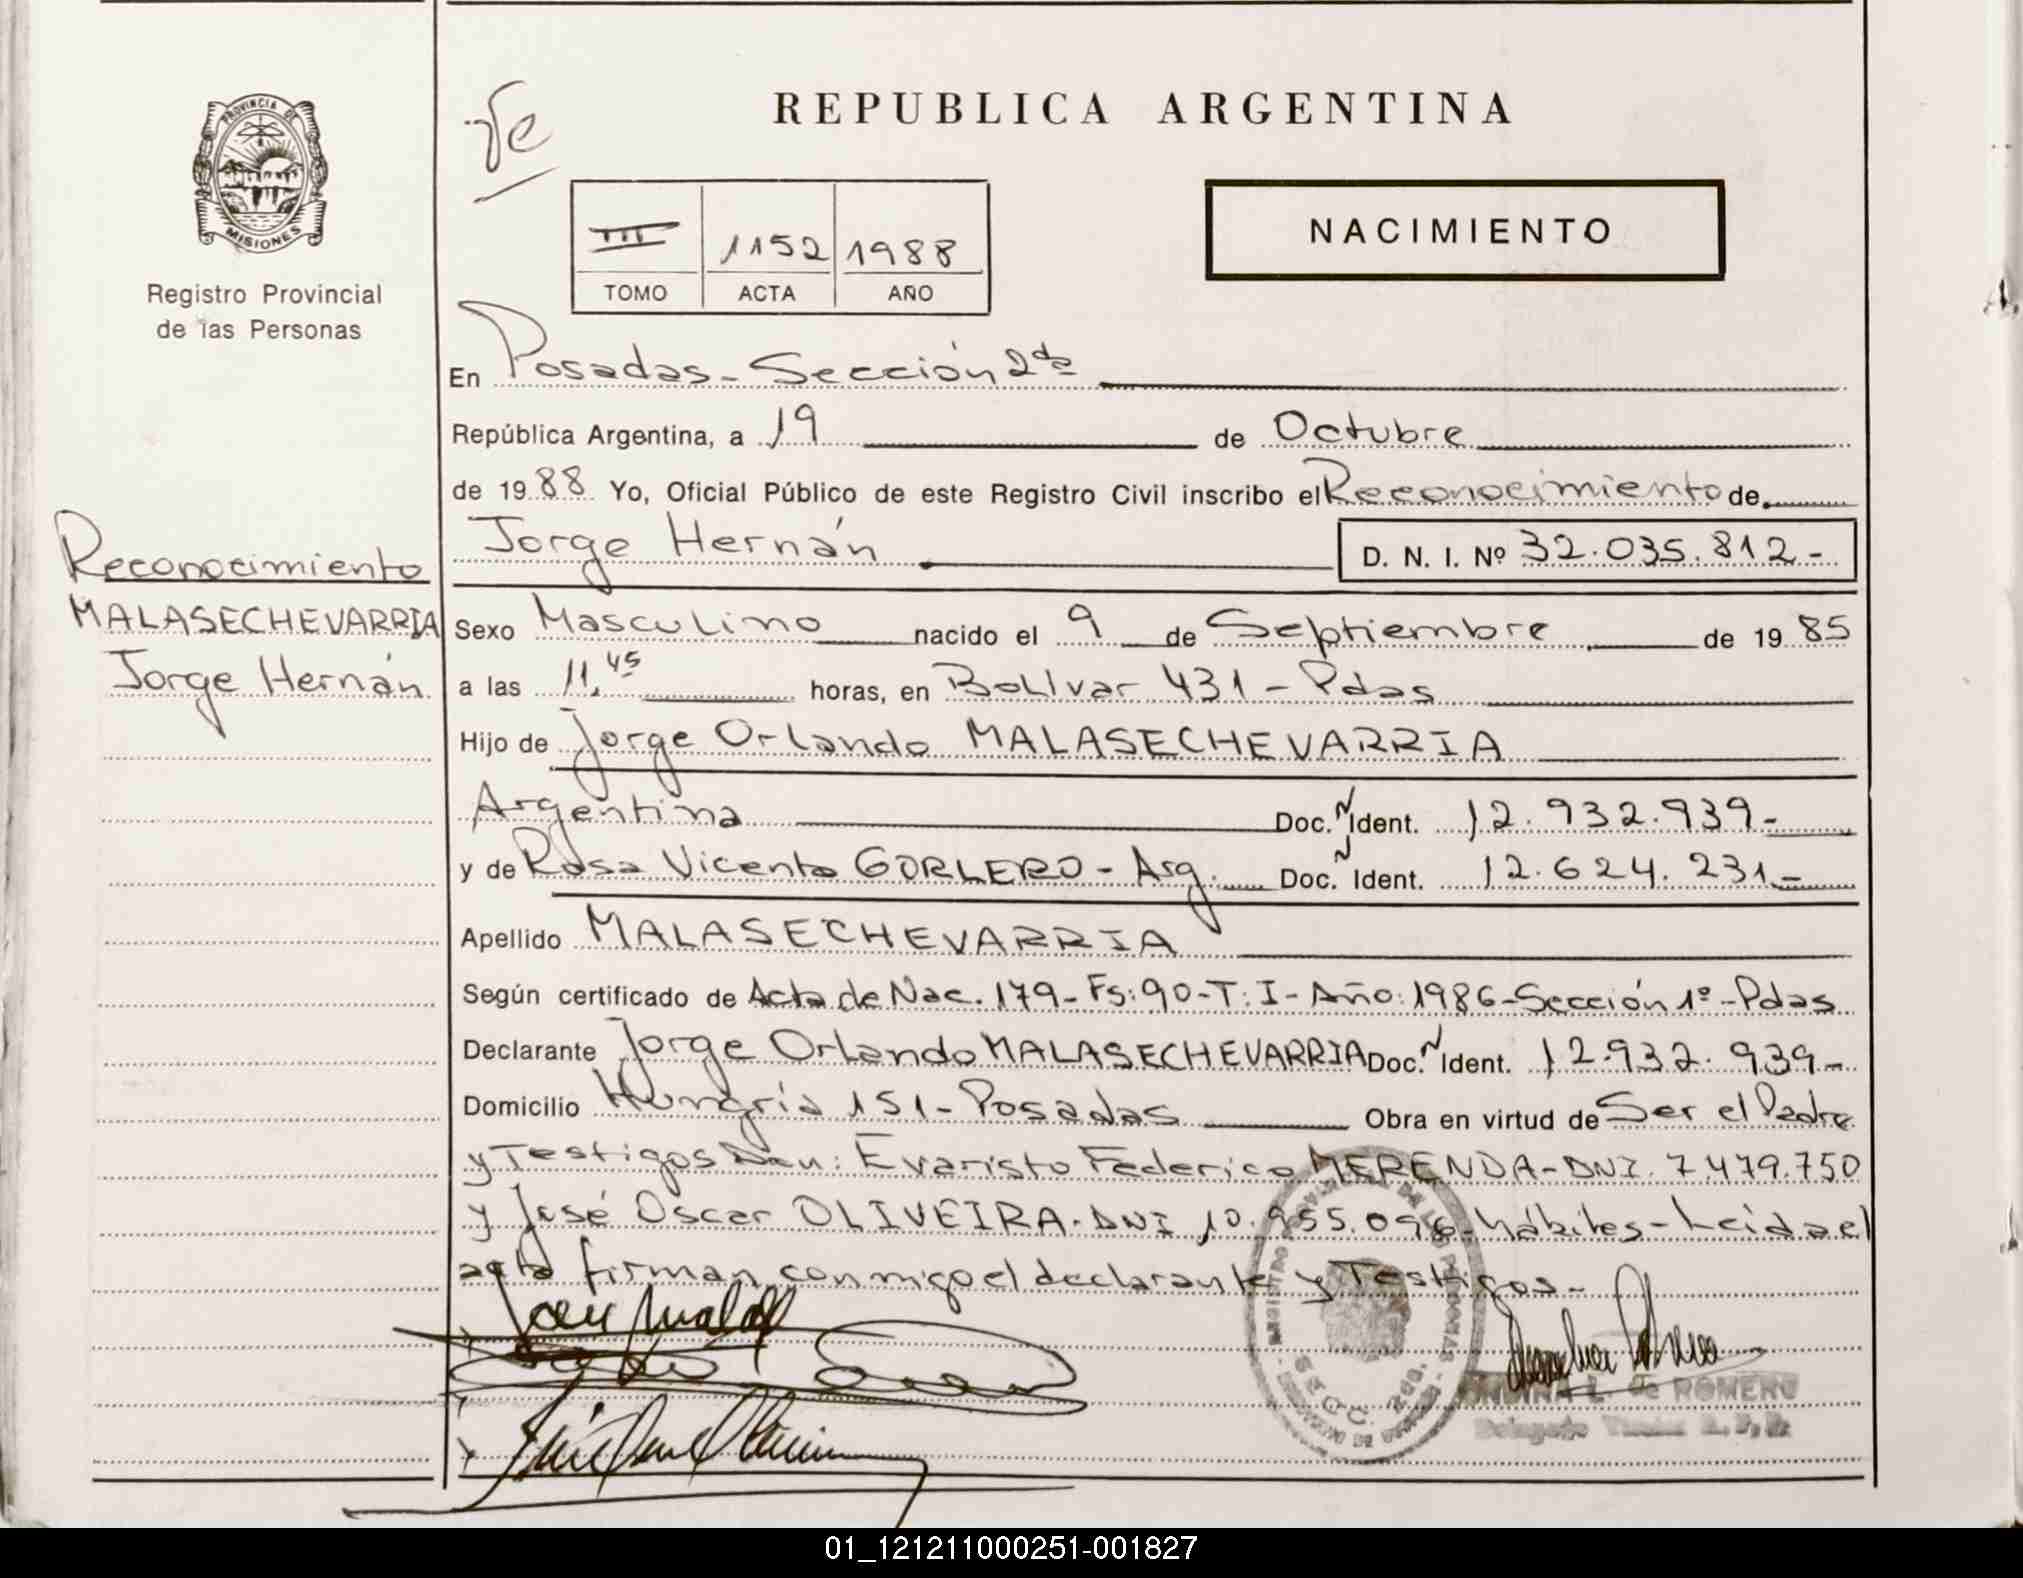 PROVINCIA DE
MISIONES
Registro Provincial
de las Personas
Reconocimiento
MALASECHEVARRIA
Jorge Hernán
REPUBLICA ARGENTINA
NACIMIENTO
III 1152 1988
TOMO ACTA AÑO
En Posadas - Sección 2da
República Argentina, a 19 de Octubre
de 1988 Yo, Oficial Público de este Registro Civil inscribo el Reconocimiento de
Jorge Hernán D. N. I. Nº 32.035.812-
Sexo Masculino nacido el 9 de Septiembre de 1985
a las 11,45 horas, en Bolívar 431 - Pdas
Hijo de Jorge Orlando MALASECHEVARRIA
Argentina Doc. N Ident. 12.932.939-
y de Rosa Vicenta GORLERO - Arg. Doc. N Ident. 12.624.231-
Apellido MALASECHEVARRIA
Según certificado de Acta de Nac. 179 - Fs: 90 - T: I - Año: 1986 - Sección 1º - Pdas
Declarante Jorge Orlando MALASECHEVARRIA Doc. N Ident. 12.932.939-
Domicilio Hungría 151 - Posadas Obra en virtud de Ser el Padre
y Testigos Don: Evaristo Federico MERENDA - DNI. 7479.750
y José Oscar OLIVEIRA - DNI 10.955.096 - hábiles - Leida el
acta firman conmigo el declarante y Testigos -
de ROMERO
01_121211000251-001827